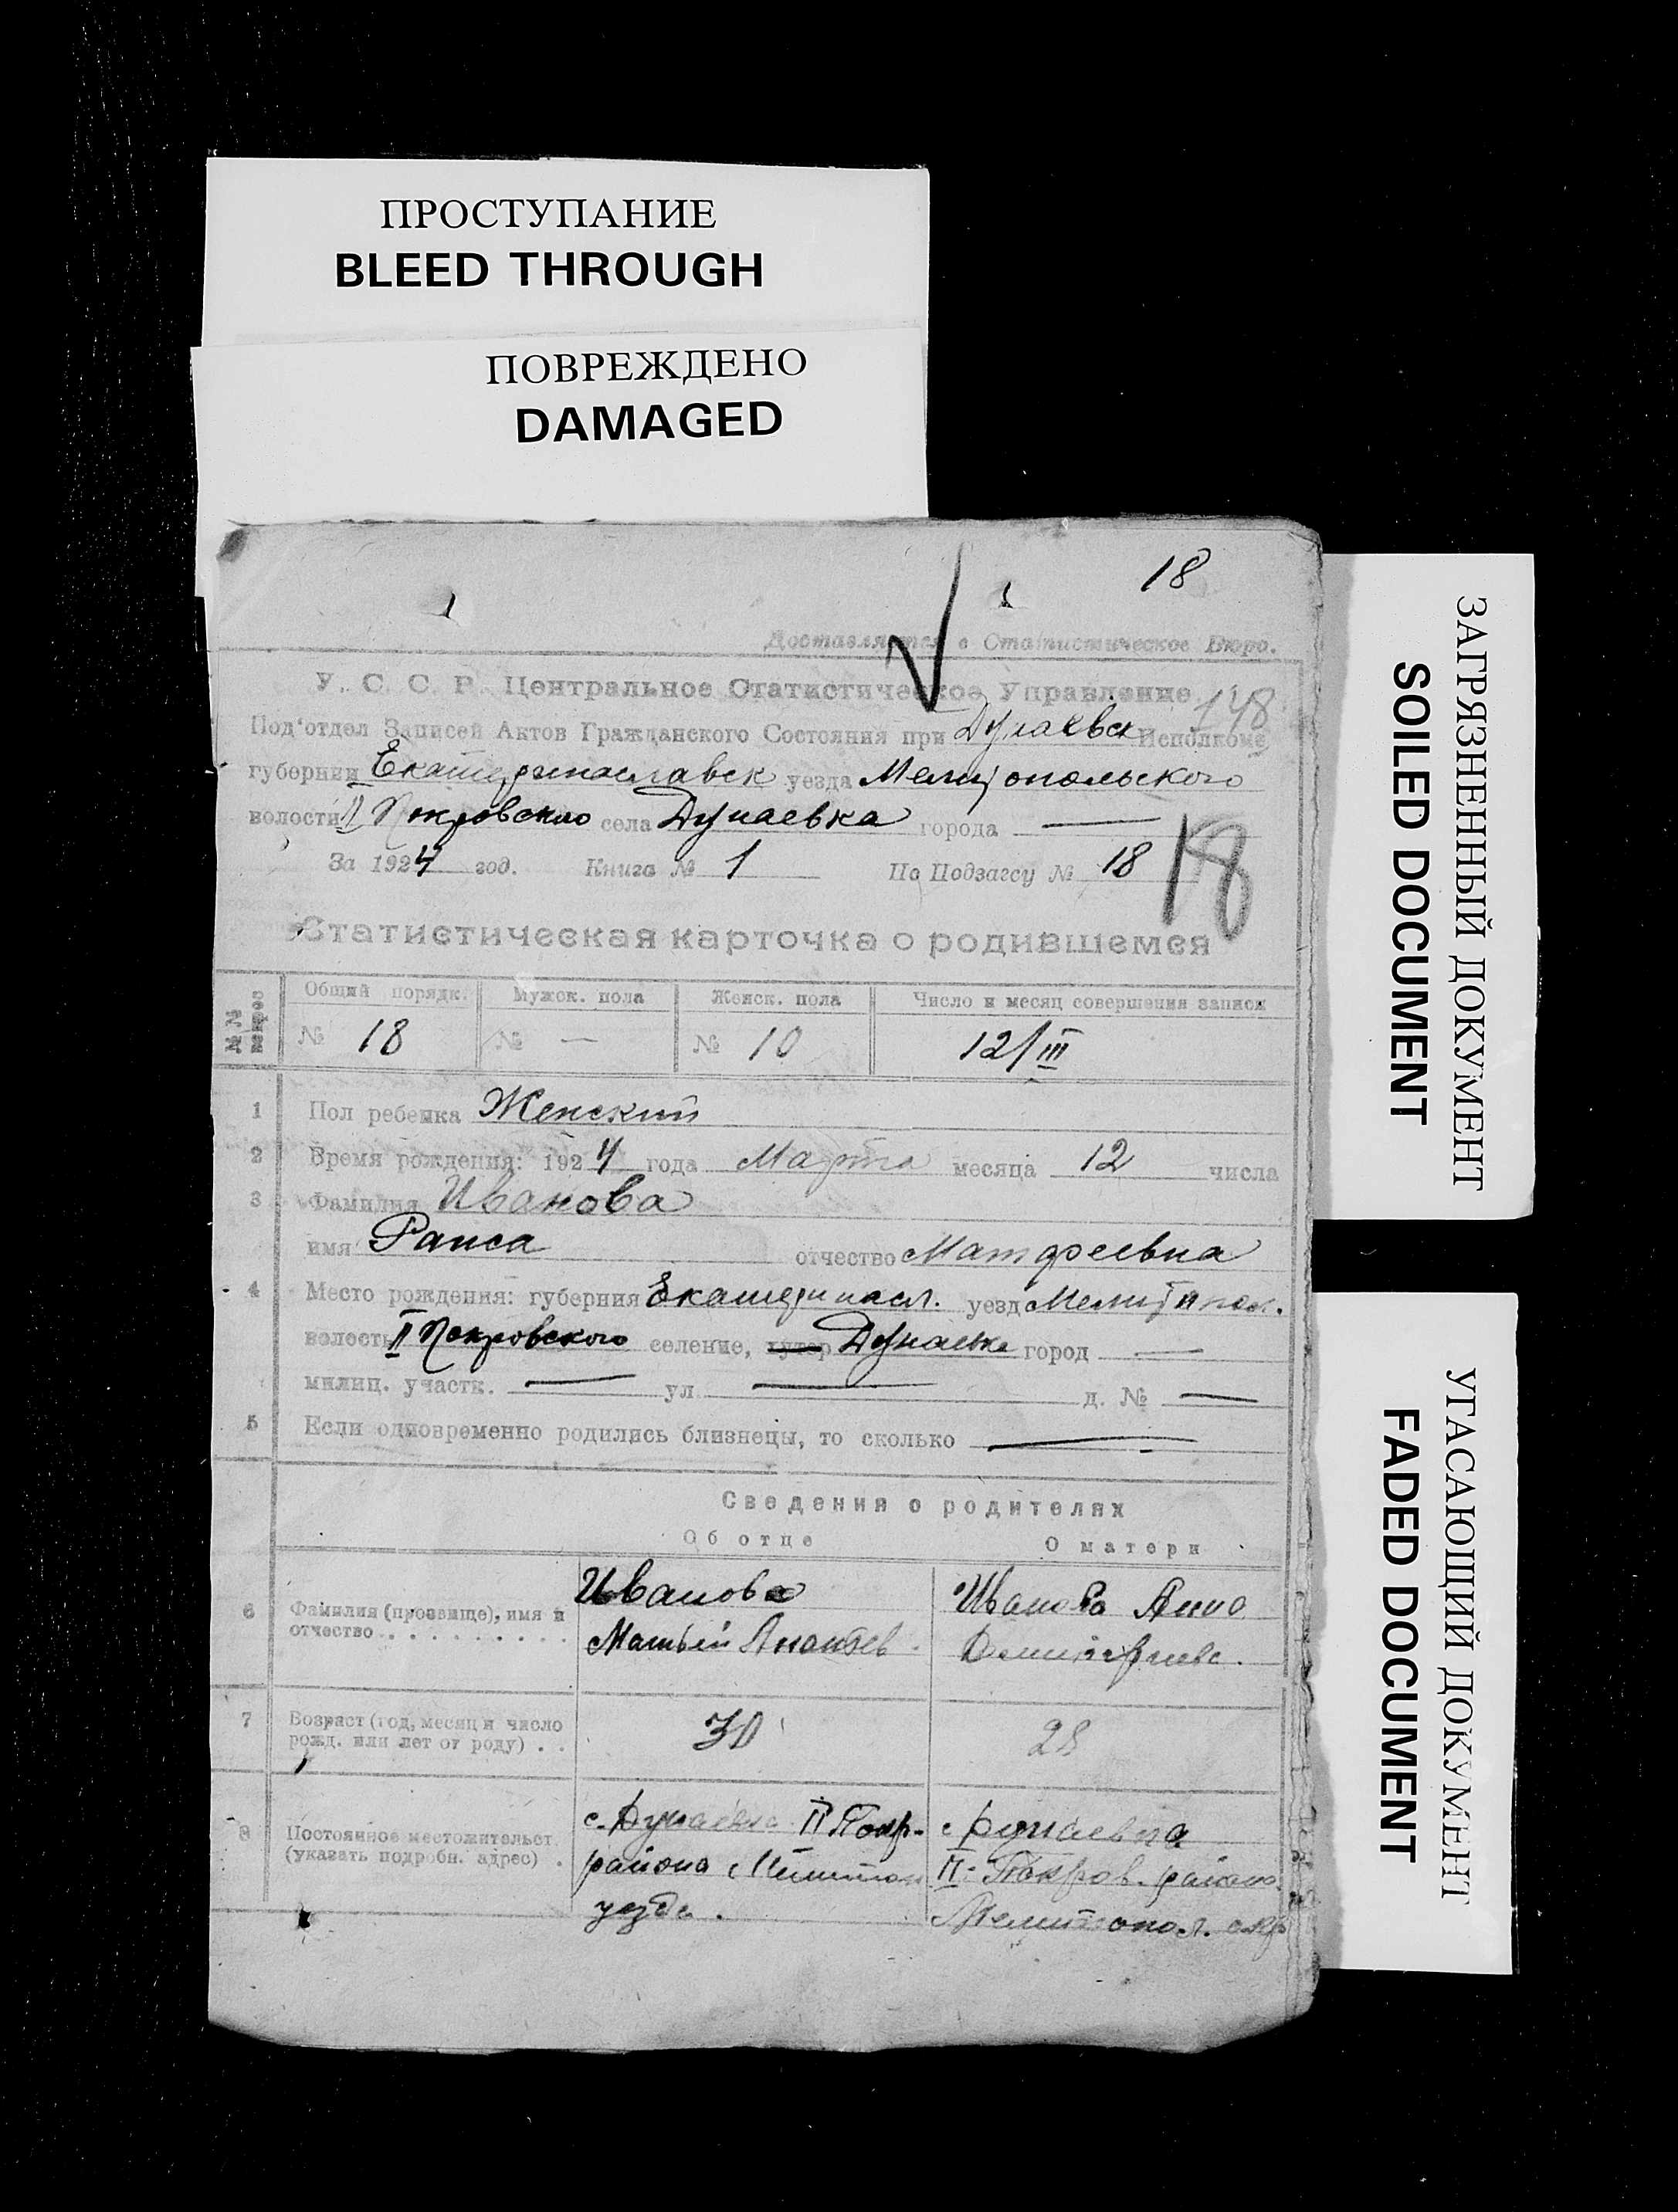 ПРОСТУПАНИЕ
BLEED THROUGH
ПОВРЕЖДЕНО
DAMAGED
18
Доставляется в Статистическое Бюро.
У. С. С. Р. Центральное Статистическое Управление
148
Под'отдел Записей Актов Гражданского Состояния при Дунаевск Исполкоме
губернии Екатеринославск уезда Мелитопольского
волости II Покровского села Дунаевка города —
За 1924 год. Книга № 1 По Подзагсу № 18
18
Статистическая карточка о родившемся
№№ вопрос Общий порядк. Мужск. пола Женск. пола Число и месяц совершения записи
№ 18 № — № 10 12/III
1 Пол ребенка Женский
2 Время рождения: 1924 года Марта месяца 12 числа
3 Фамилия Иванова
имя Раиса отчество Матфеевна
4 Место рождения: губерния Екатеринасл. уезд Мелитопол.
волость II Покровского селение, хутор Дунаевка город —
милиц. участк. — ул. — д. № —
5 Если одновременно родились близнецы, то сколько —
Сведения о родителях
Об отце О матери
6 Фамилия (прозвище), имя и отчество . . . . . . . . . .
Иванова
Матвей
Иванова Анна
7 Возраст (год, месяц и число рожд. или лет от роду) . .
30
28
8 Постоянное местожительст. (указать подробн. адрес) .
с. Дунаевка II Покр.
района Мелитоп
уезда.
с Дунаевка
II- Покров. района
Мелитопол. окр
ЗАГРЯЗНЕННЫЙ ДОКУМЕНТ
SOILED DOCUMENT
УГАСАЮЩИЙ ДОКУМЕНТ
FADED DOCUMENT